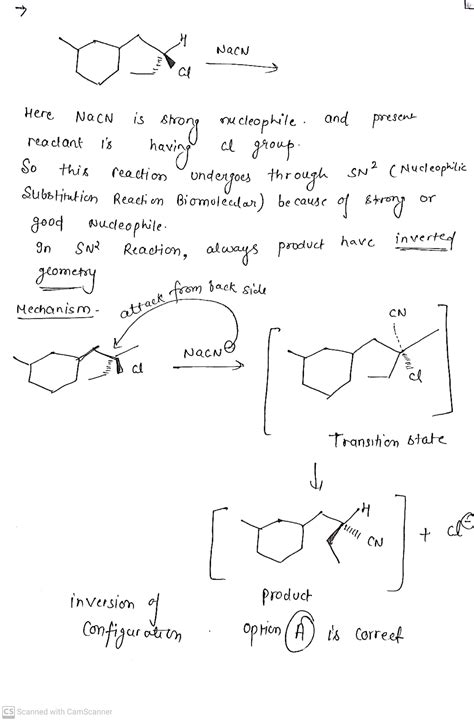 →
H
Cl
NaCN
Here NaCN is strong nucleophile. and present
reactant is having Cl group.
So this reaction undergoes through SN² (Nucleophilic
Substitution Reaction Biomolecular) because of strong or
good Nucleophile.
In SN² Reaction, always product have inverted
geometry
Mechanism -
attack from back side
Cl
NaCN⊖
CN
Cl
Transition state
↓
H
CN
+ Cl⊖
product
inversion of
Configuration . option (A) is correct
CS Scanned with CamScanner